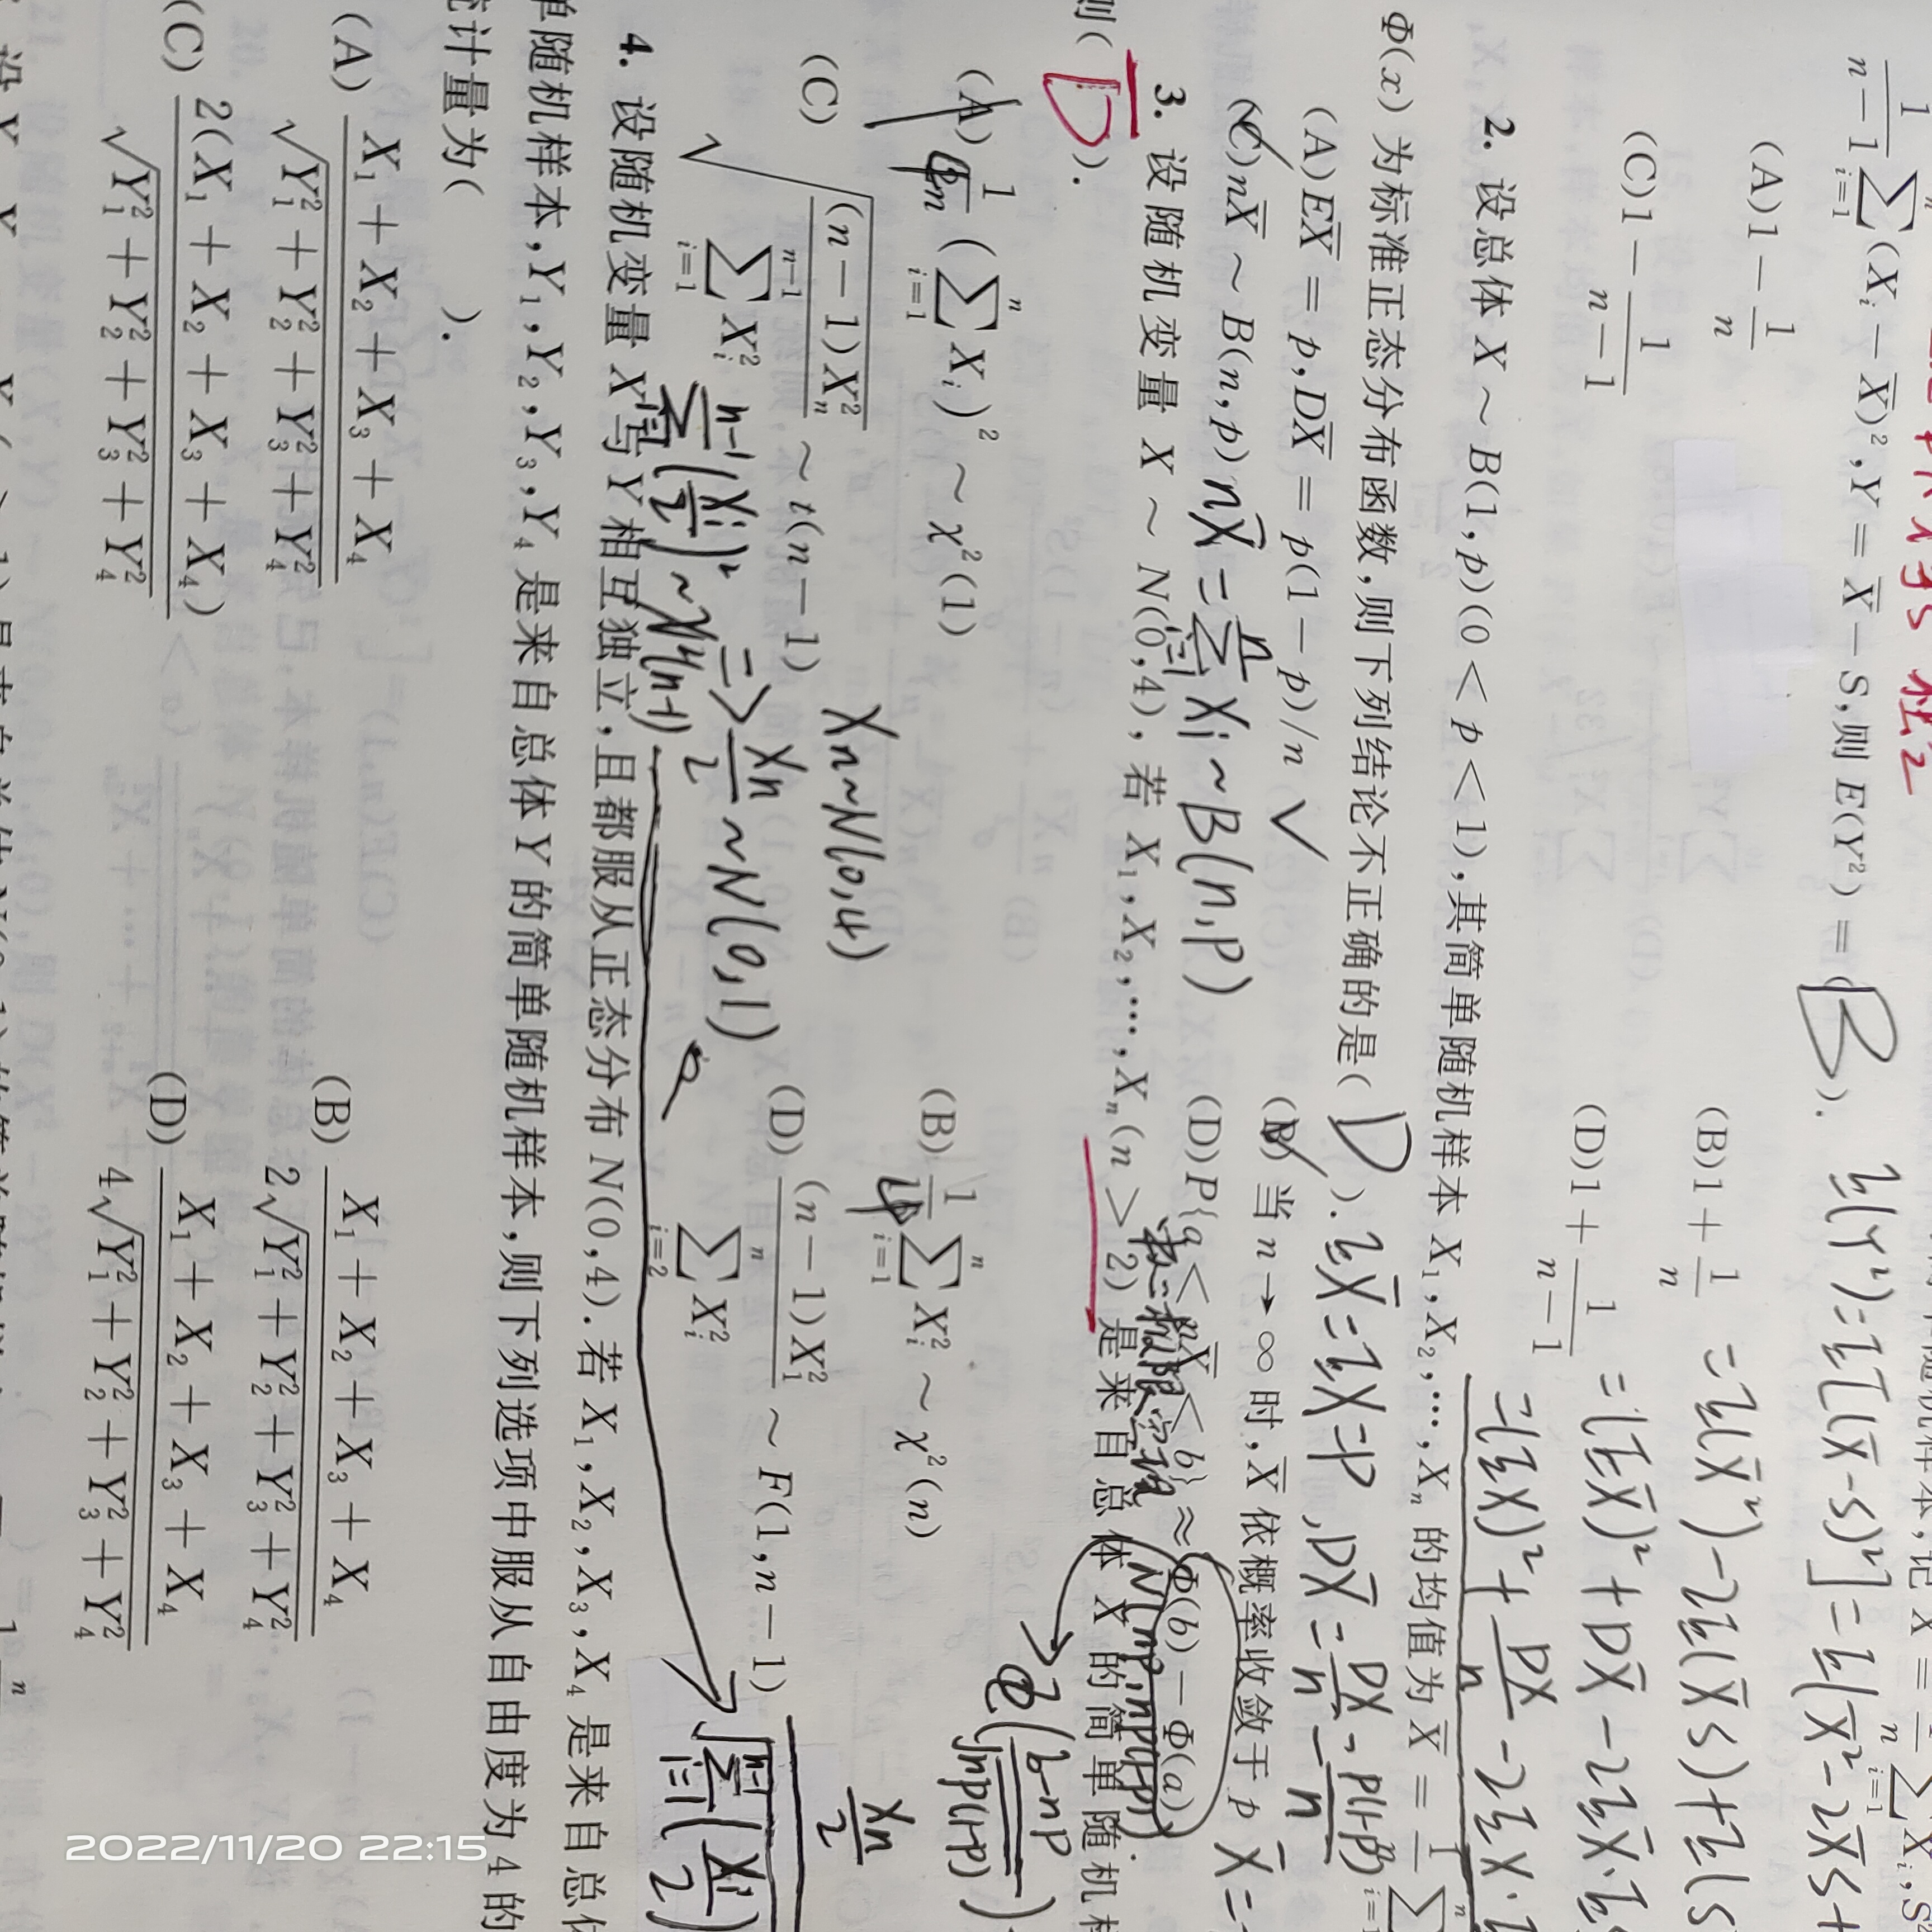 $\frac{1}{n-1}\sum_{i=1}^{n}(X_i-\bar{X})^2,Y=\bar{X}-S,则 E(Y^2)=(B).
(A)$1-\frac{1}{n}$ (B)$1+\frac{1}{n}$
(C)$1-\frac{1}{n-1}$ (D)$1+\frac{1}{n-1}$
$E(Y^2)=E[(\bar{X}-S)^2]=E(\bar{X}^2-2\bar{X}S+$
$=E(\bar{X}^2)-2E(\bar{X}S)+E(S$
$=(E\bar{X})^2+D\bar{X}-2E\bar{X}\cdot E$
$=(EX)^2+\frac{DX}{n}-2EX\cdot$
2. 设总体 X ~ B(1,p)(0 < p < 1),其简单随机样本 $X_1,X_2,\cdots,X_n$ 的均值为 $\bar{X}=\frac{1}{n}\sum_{i=1}^{n}$
Φ(x) 为标准正态分布函数,则下列结论不正确的是( D ).
$E\bar{X}=EX=p,D\bar{X}=\frac{DX}{n}=\frac{p(1-p)}{n}$
(A)$E\bar{X}=p,D\bar{X}=p(1-p)/n$ √ (B)当 n→∞ 时,$\bar{X}$ 依概率收敛于 p
(C)$n\bar{X}$ ~ B(n,p) $n\bar{X}=\sum_{i=1}^{n}X_i$ ~ B(n,p) (D)P{a < $n\bar{X}$ < b} ≈ Φ(b) − Φ(a)
N(np,np(1-p))
$Φ(\frac{b-np}{\sqrt{np(1-p)}})$
3. 设随机变量 X ~ N(0,4), 若 $X_1,X_2,\cdots,X_n$(n > 2) 是来自总体 X 的简单随机样
则( D ).
(A)$\frac{1}{4n}(\sum_{i=1}^{n}X_i)^2$ ~ $\chi^2(1)$ (B)$\frac{1}{4}\sum_{i=1}^{n}X_i^2$ ~ $\chi^2(n)$
(C)$\sqrt{\frac{(n-1)X_n^2}{\sum_{i=1}^{n-1}X_i^2}}$ ~ t(n−1) (D)$\frac{(n-1)X_1^2}{\sum_{i=2}^{n}X_i^2}$ ~ F(1,n−1)
$X_n$ ~ N(0,4)
⇒ $\frac{X_n}{2}$ ~ N(0,1)
$\sum_{i=1}^{n-1}(\frac{X_i}{2})^2$ ~ $\chi^2(n-1)$
$\frac{X_n}{2}$
$\sqrt{\sum_{i=1}^{n-1}(\frac{X_i}{2})$
4. 设随机变量 X 与 Y 相互独立,且都服从正态分布 N(0,4).若 $X_1,X_2,X_3,X_4$ 是来自总体
单随机样本,$Y_1,Y_2,Y_3,Y_4$ 是来自总体 Y 的简单随机样本,则下列选项中服从自由度为 4 的
统计量为( ).
(A)$\frac{X_1+X_2+X_3+X_4}{\sqrt{Y_1^2+Y_2^2+Y_3^2+Y_4^2}}$ (B)$\frac{X_1+X_2+X_3+X_4}{2\sqrt{Y_1^2+Y_2^2+Y_3^2+Y_4^2}}$
(C)$\frac{2(X_1+X_2+X_3+X_4)}{\sqrt{Y_1^2+Y_2^2+Y_3^2+Y_4^2}}$ (D)$\frac{X_1+X_2+X_3+X_4}{4\sqrt{Y_1^2+Y_2^2+Y_3^2+Y_4^2}}$
2022/11/20 22:15